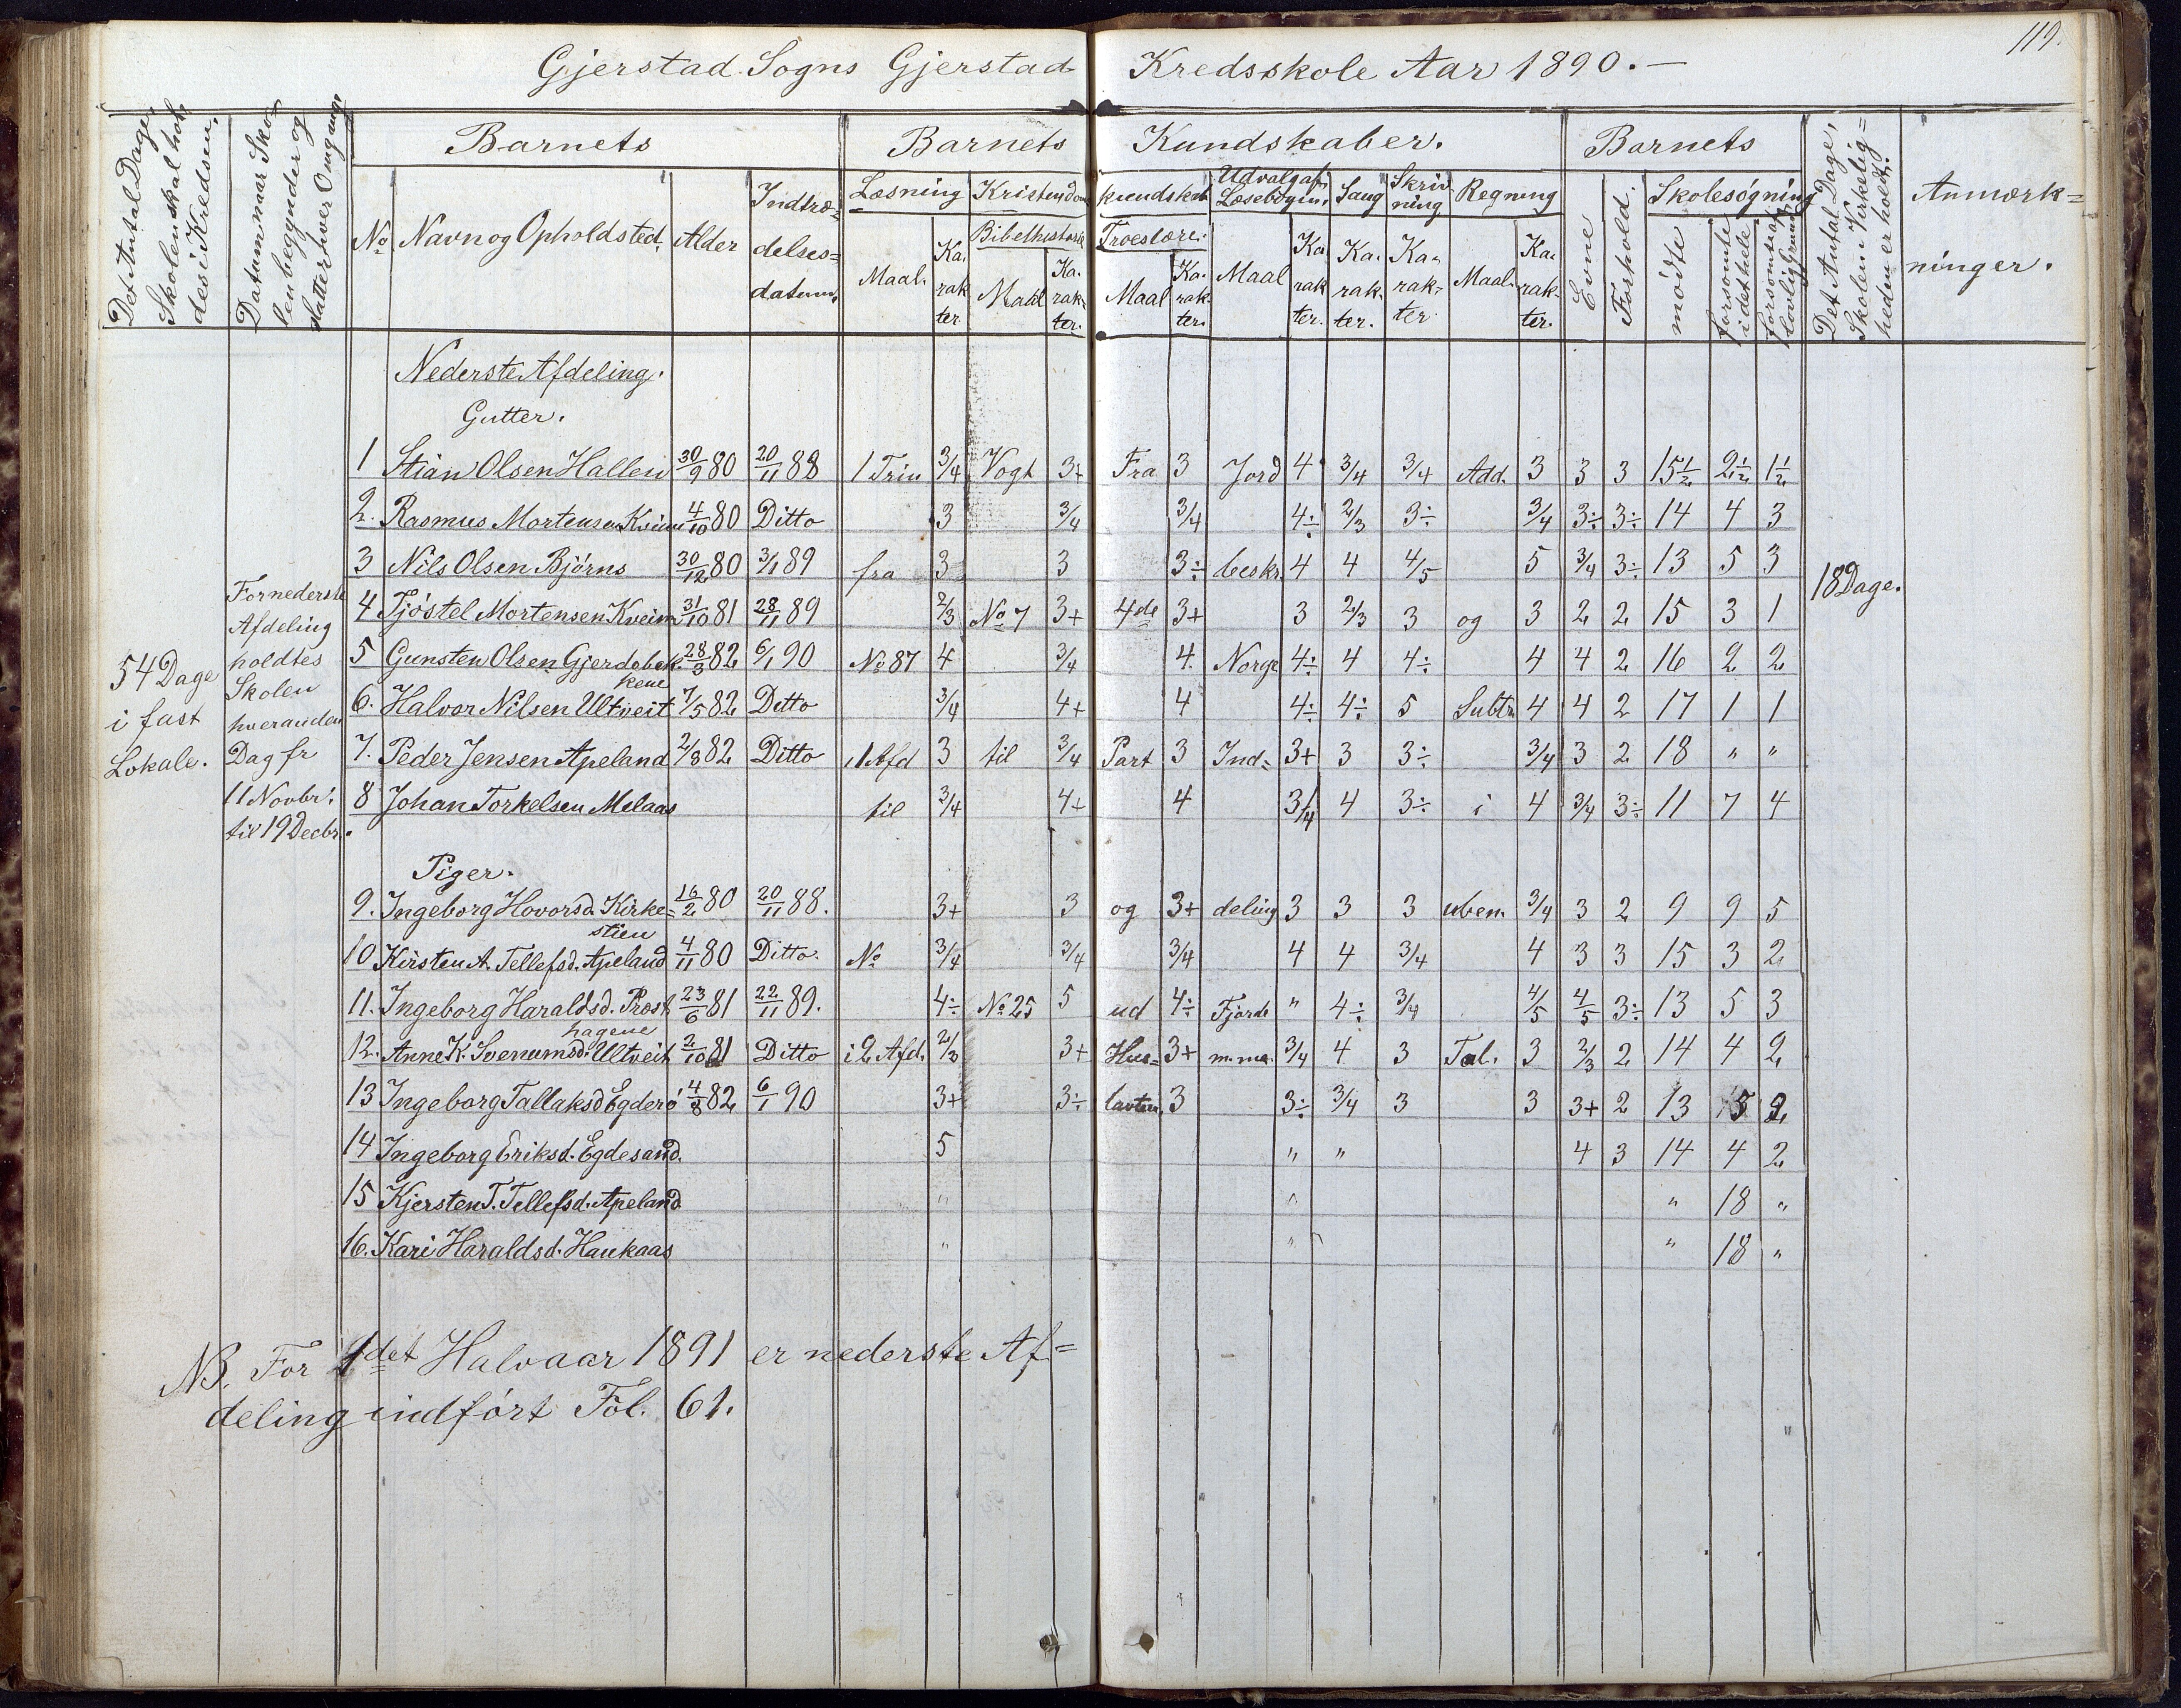 119.
Gjerstad Sogns Gjerstad Kredsskole Aar 1890.-
Det Antal Dage, Skolen skal holdes i Kredsen.
Datum naar Skolen begynder og slutter hver Omgang
Barnets
Barnets Kundskaber.
Barnets
Det Antal Dage, Skolen i Virkeligheden er holdt.
Anmærkninger.
No Navn og Opholdsted. Alder Indtrædelsesdatum.
Læsning Kristendomskundskab Udvalg af Læsebogen. Sang Skrivning Regning
Evne Forhold. Skolesøgning
Bibelhistorie Troeslære.
Maal. Karakter Maal Karakter. Maal Karakter. Maal Karakter. Karakter. Karakter Maal. Karakter.
mødte forsømte i det hele forsømt af lovlig Grund
Nederste Afdeling.
Gutter.
1 Stian Olsen Hallen 30/9 80 20/11 88 1 Trin 3/4 Vogt 3+ Fra 3 Jord 4 3/4 3/4 Add. 3 3 3 15½ 2½ 1½
2. Rasmus Mortensen Kveim 4/10 80 Ditto 3 3/4 3/4 4÷ 2/3 3÷ 3/4 3÷ 3÷ 14 4 3
3 Nils Olsen Bjørns 30/12 80 3/1 89 fra 3 3 3÷ beskr. 4 4 4/5 5 3/4 3÷ 13 5 3
4 Tjøstel Mortensen Kveim 31/10 81 28/11 89 2/3 No 7 3+ 4de 3+ 3 2/3 3 og 3 2 2 15 3 1
5 Gunsten Olsen Gjerdebekkene 28/3 82 6/1 90 No 87 4 3/4 4. Norge 4÷ 4 4÷ 4 4 2 16 2 2
6. Halvor Nilsen Ultveit 7/5 82 Ditto 3/4 4+ 4 4÷ 4÷ 5 Subtr. 4 4 2 17 1 1
7. Peder Jensen Apeland 2/8 82 Ditto 1 Afd 3 til 3/4 Part 3 Ind= 3+ 3 3÷ 3/4 3 2 18 " "
8 Johan Torkelsen Melaas til 3/4 4+ 4 3/4 4 3÷ i 4 3/4 3÷ 11 7 4
Piger.
9. Ingeborg Hovorsd. Kirkestien 16/2 80 20/11 88. 3+ 3 og 3+ deling 3 3 3 uben. 3/4 3 2 9 9 5
10 Kirsten A. Tellefsd. Apeland 4/11 80 Ditto. No 3/4 3/4 3/4 4 4 3/4 4 3 3 15 3 2
11. Ingeborg Haraldsd. Prosthagene 23/6 81 22/11 89. 4÷ No 25 5 ud 4÷ Fjorde " 4÷ 3/4 4/5 4/5 3÷ 13 5 3
12. Anne K. Svenumsd. Ultveit 2/10 81 Ditto i 2 Afd. 2/3 3+ Hus= 3+ m. ma. 3/4 4 3 Tal. 3 2/3 2 14 4 2
13 Ingeborg Tallaksd Egderø 4/8 82 6/1 90 3+ 3÷ tavten 3 3÷ 3/4 3 3 3+ 2 13 5 2
14 Ingeborg Eriksd. Egdesand. 5 " " 4 3 14 4 2
15 Kjersten T. Tellefsd. Apeland " " " 18 "
16. Kari Haraldsd. Haukaas " " " 18 "
54 Dage
i fast
Lokale.
For nederste
Afdeling
holdtes
Skolen
hveranden
Dag fr
11 Novbr.
til 19 Decbr.
18 Dage.
NB. For 1det Halvaar 1891 er nederste Af=
deling indført Fol. 61.